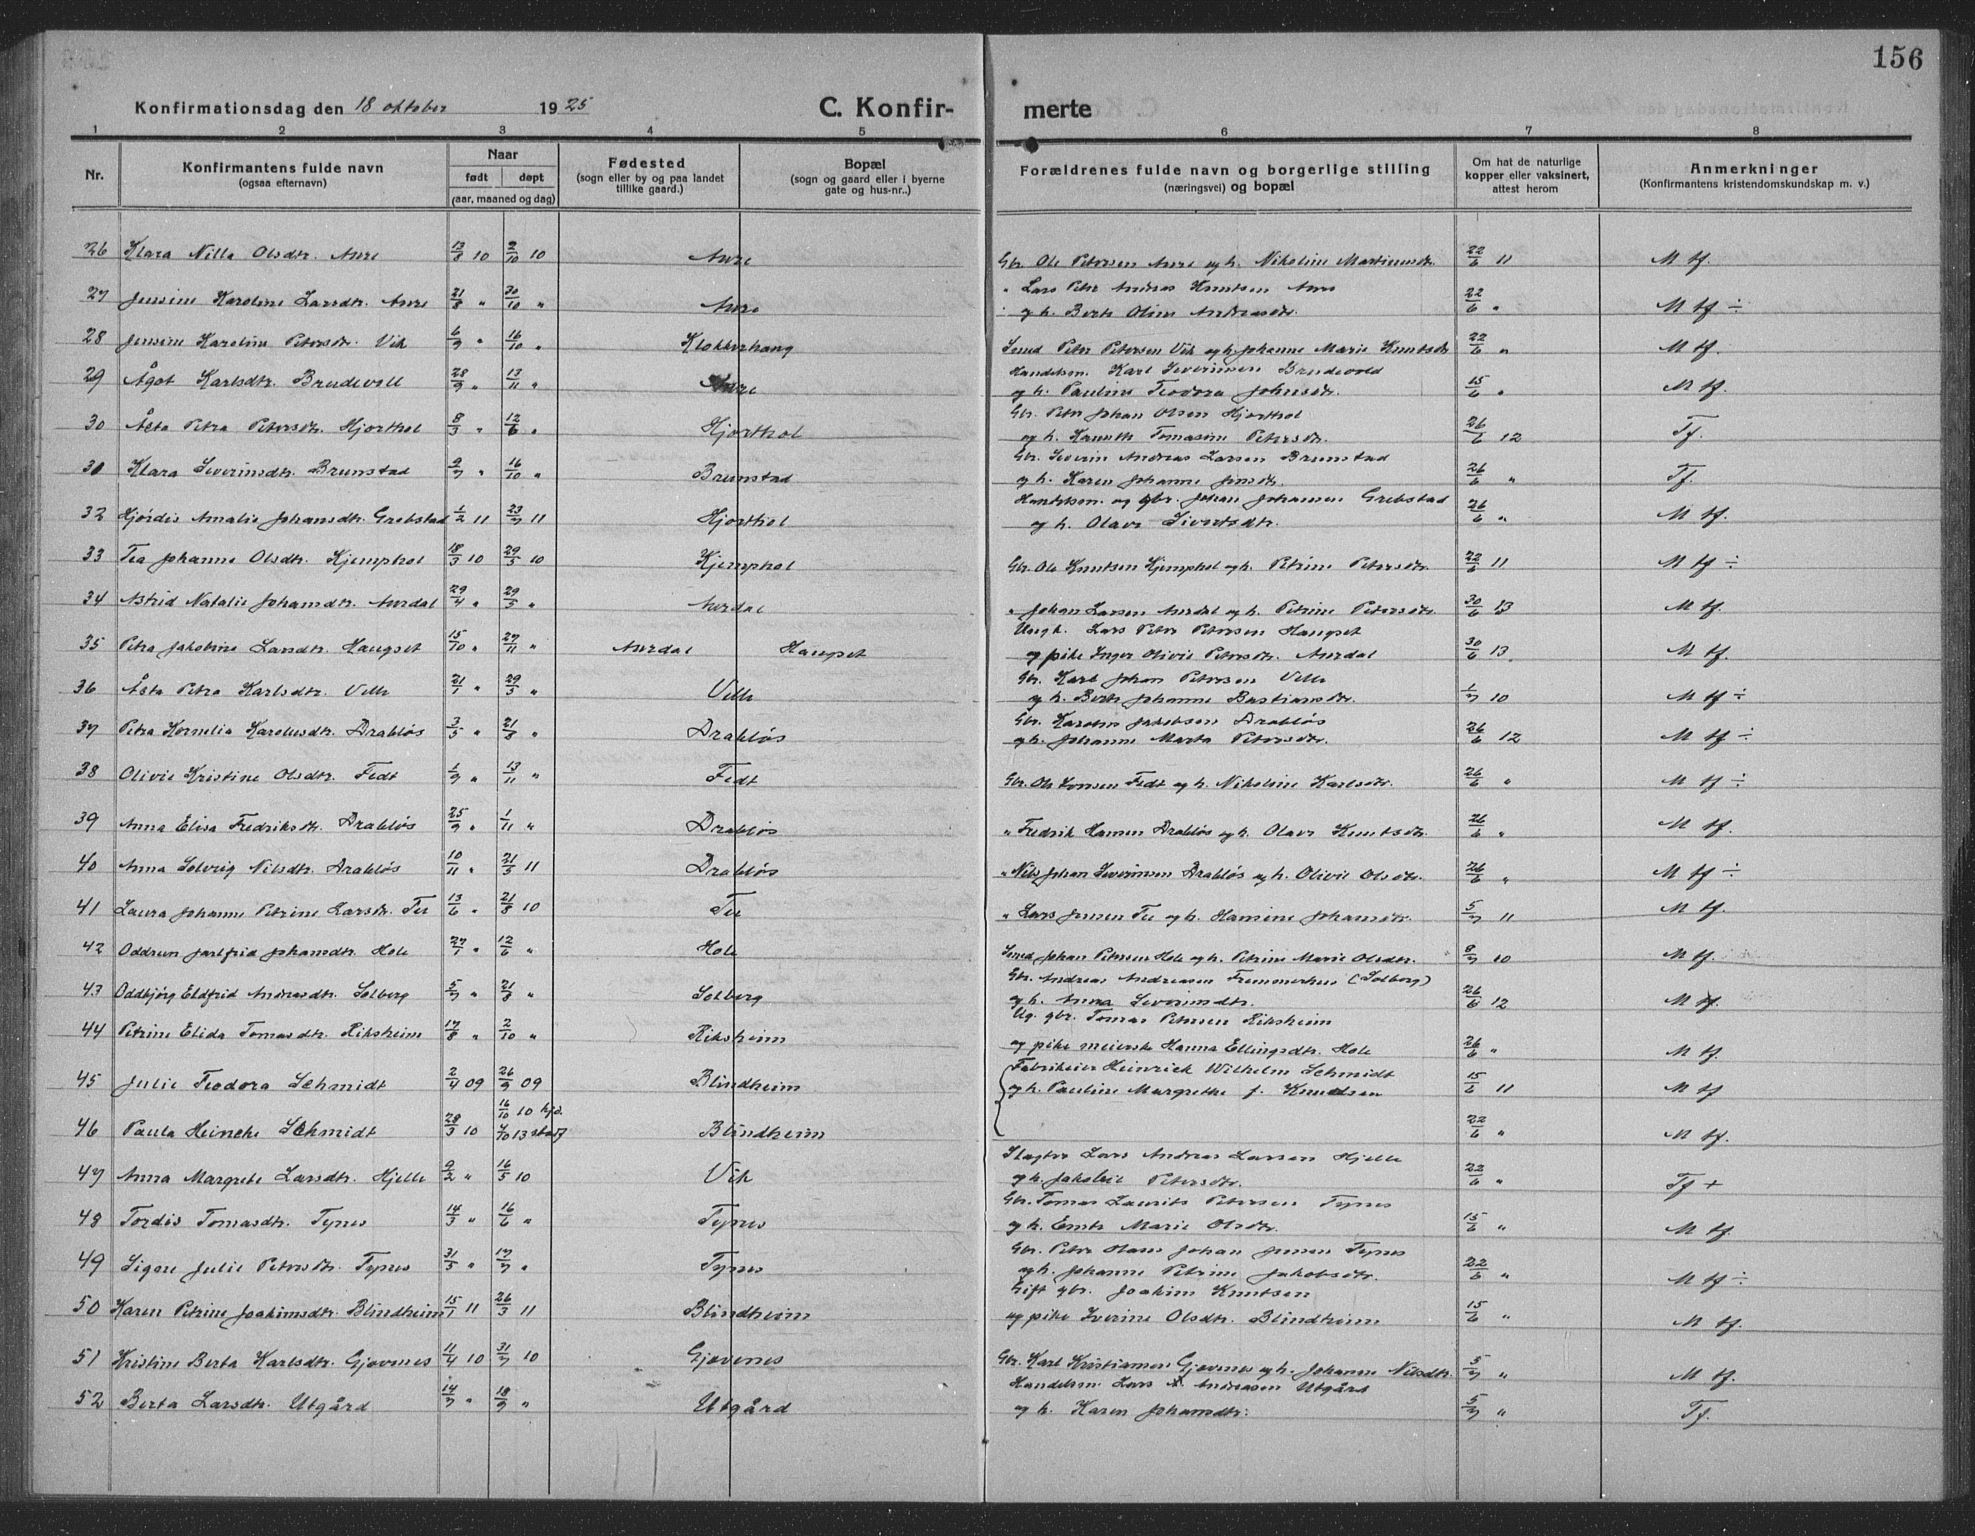 156
Konfirmationsdag den 18 oktober 1925 C. Konfir- merte
1 2 3 4 5 6 7 8
Nr. Konfirmantens fulde navn (ogsaa efternavn) Naar født døpt (aar, maaned og dag) Fødested (sogn eller by og paa landet tillike gaard.) Bopæl (sogn og gaard eller i byerne gate og hus-nr..) Forældrenes fulde navn og borgerlige stilling (næringsvei) og bopæl Om hat de naturlige kopper eller vaksinert, attest herom Anmerkninger (Konfirmantens kristendomskundskap m. v.)
26 Klara Nilla Olsdtr. Aure 13/8 10 2/10 10 Aure Gbr. Ole Petersen Aure og h. Nikoline Martinusdtr. 22/6 11 M tf.
" Lars Peter Andreas Knutsen Aure
27 Jensine Karoline Larsdtr. Aure 21/8 " 30/10 " Aure og h. Berte Oline Andreasdtr. 22/6 " M tf ÷
28 Jensine Karoline Petersdtr. Vik 6/9 " 16/10 " Klokkerhaug Smed Peter Petersen Vik og h. Johanne Marie Knutsdtr 22/6 " M tf.
Handelsm. Karl Severinsen Brudevold
29 Ågot Karlsdtr. Brudevoll 28/9 " 13/11 " Aure og h. Pauline Teodora Johnsdtr. 15/6 " M tf.
Gbr. Peter Johan Olsen Hjorthol
30 Åsta Petra Petersdtr. Hjorthol 8/3 " 12/6 " Hjorthol og h. Tomasine Petersdtr. 26/6 12 Tf.
Gbr. Severin Andreas Larsen Brunstad
31 Klara Severinsdtr. Brunstad 9/7 " 16/10 " Brunstad og h. Karen Johanne Jensdtr. 26/6 " Tf.
Handelsm. og gbr. Johan Johansen Grebstad
32 Hjørdis Amalie Johansdtr. Grebstad 1/2 11 23/7 11 Hjorthol og h. Olave Sivertsdtr. 26/6 " M tf.
33 Tea Johanne Olsdtr. Kjemphol 18/3 10 29/5 10 Kjemphol Gbr. Ole Knutsen Kjemphol og h. Petrine Petersdtr. 22/6 11 M tf ÷
34 Astrid Natalie Johansdtr. Aurdal 29/4 " 29/5 " Aurdal " Johan Larsen Aurdal og h. Petrine Petersdtr. 30/6 13 M tf.
Ungk. Lars Peter Petersen Haugset
35 Petra Jakobine Larsdtr. Haugset 15/10 " 27/11 " Aurdal Haugset og pike Inger Olivie Petersdtr. Aurdal 30/6 13 M tf.
Gbr. Karl Johan Petersen Velle
36 Åsta Petra Karlsdtr. Velle 21/1 " 29/5 " Velle og h. Berte Johanne Bastiansdtr. 1/7 10 M tf ÷
Gbr. Karolus Jakobsen Drabløs
37 Petra Kornelia Karolusdtr. Drabløs 3/5 " 21/8 " Drabløs og h. Johanne Marta Petersdtr. 26/6 12 M tf ÷
38 Olivie Kristine Olsdtr. Fedt 1/9 " 13/11 " Fedt Gbr. Ole Fedt og h. Nikoline Karlsdtr. 26/6 " M tf ÷
39 Anna Elisa Fredriksdtr. Drabløs 25/9 " 1/11 " Drabløs " Fredrik Hansen Drabløs og h. Olave Knutsdtr. 26/6 " M tf.
40 Anna Solveig Nilsdtr. Drabløs 10/11 " 21/5 11 Drabløs " Nils Johan Severinsen Drabløs og h. Olivie Olsdtr. 26/6 " M tf ÷
41 Laura Johanne Petrine Larsdtr. Tu 13/6 " 21/8 10 Tu " Lars Jensen Tu og h. Hansine Johansdtr. 5/7 11 M tf.
42 Oddrun Jarlfrid Johansdtr. Hole 27/7 " 12/6 " Hole Smed Johan Petersen Hole og h. Petrine Marie Olsdtr. 8/7 10 M tf.
Gbr. Andreas Andreasen Fremmerhus (Solberg)
43 Oddbjørg Eldfrid Andreasdtr. Solberg 5/7 " 21/8 " Solberg og h. Anna Severinsdtr. 26/6 12 M tf.
Ug. gbr. Tomas Petersen Riksheim
44 Petrine Elida Tomasdtr. Riksheim 17/8 " 2/10 " Riksheim og pike meierske Hanna Ellingsdtr. Hole 26/6 " M tf
Fabrikeier Heinrich Wilhelm Schmidt
45 Julie Teodora Schmidt 2/4 09 26/9 09 Blindheim og h. Pauline Margrethe f. Knudsen 15/6 11 M tf
46 Paula Heinche Schmidt 28/3 10 16/10 10 hjd. 4/10 13 stadf Blindheim 22/6 " M tf.
Slagter Lars Andreas Larsen Hjelle
47 Anna Margrete Larsdtr. Hjelle 9/2 " 16/5 10 Vik og h. Jakobie Petersdtr. 22/6 " Tf +
Gbr. Tomas Laurits Petersen Tynes
48 Tordis Tomasdtr. Tynes 14/3 " 16/6 " Tynes og h. Emte Marie Olsdtr. 15/6 " M tf.
Gbr. Peter Olaus Johan Jensen Tynes
49 Signe Julie Petersdtr. Tynes 31/5 " 17/7 " Tynes og h. Johanne Petrine Jakobsdtr. 22/6 " M tf ÷
Gift gbr. Joakim Knutsen
50 Karen Petrine Joakimsdtr. Blindheim 15/1 11 26/3 11 Blindheim og pike Iverine Olsdtr. Blindheim 15/6 " M tf.
51 Kristine Berta Karlsdtr. Gjævenes 11/4 10 31/7 10 Gjævenes Gbr. Karl Kristiansen Gjævenes og h. Johanne Nilsdtr. 5/7 " M tf.
Handelsm. Lars Andreasen Utgård
52 Berta Larsdtr. Utgård 14/7 " 18/9 " Utgård og h. Karen Johansdtr. 5/7 " Tf.